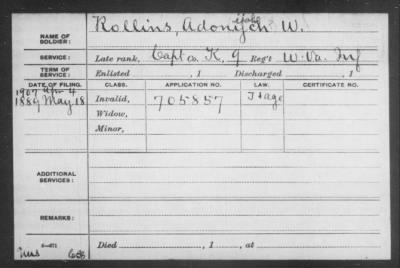 ijah
NAME OF SOLDIER: Rollins, Adonyich W.
SERVICE: Late rank, Capt Co. K, 9 Reg't W. Va. Inf
TERM OF SERVICE: Enlisted , 1 Discharged , 1
DATE OF FILING. CLASS. APPLICATION NO. LAW. CERTIFICATE NO.
1907 Apr 4
1889 May 18 Invalid, 705857
Widow,
Minor,
ADDITIONAL SERVICES:
REMARKS:
Died , 1 , at